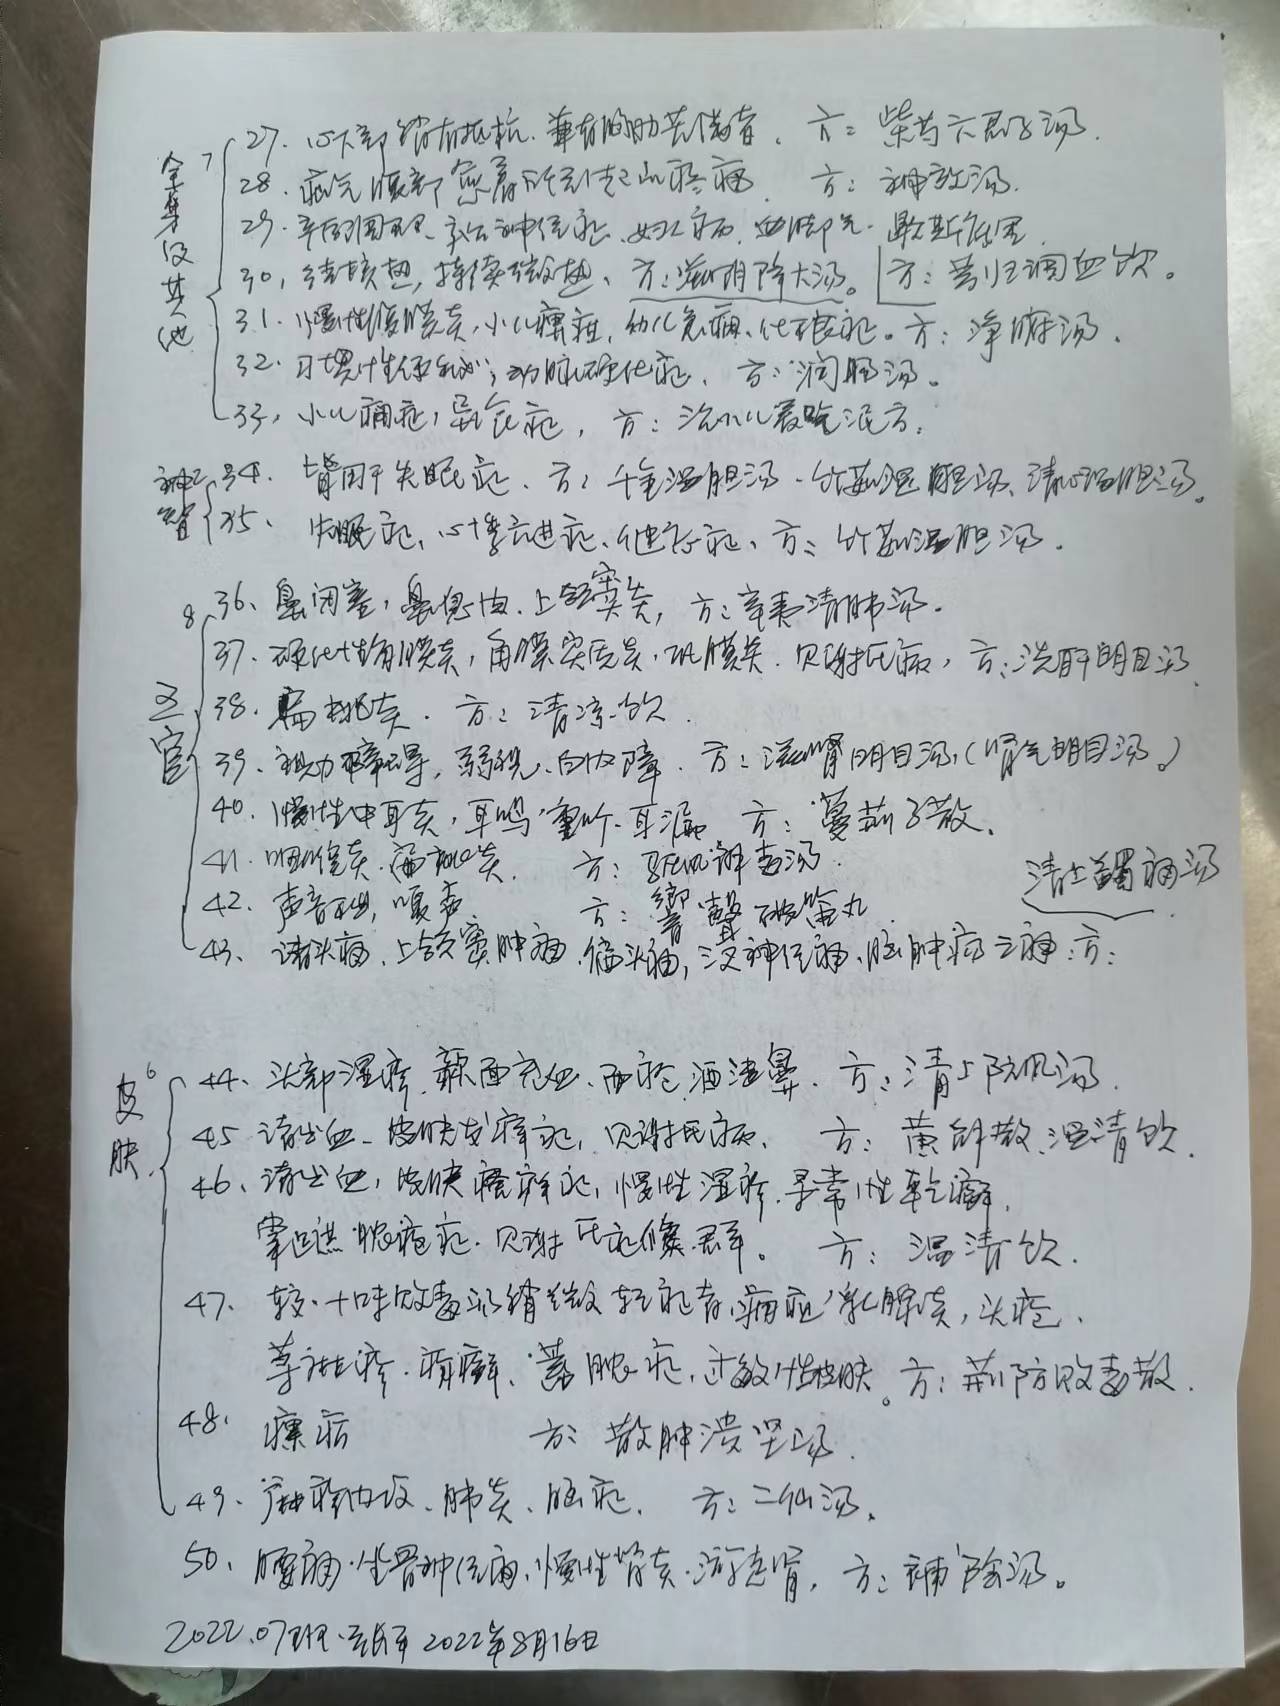 全集及其他 7
27. 心下部稍有抵抗. 兼有胸胁苦满者. 方: 柴芍六君子汤.
28. 疝气腹部 所引起的疼痛 方: 神效汤.
29. 产前调理、 神经症、妇人病、血脚气. 歇斯底里
30, 结核热, 持续微热、方: 滋阴降火汤。 方: 芎归调血饮。
31. 慢性腹膜炎, 小儿 , 幼儿 症。方: 净腑汤.
32. 习惯性便秘; 动脉硬化症. 方: 润肠汤。
33, 小儿 症, 异食症, 方: 治小儿爱吃泥方;
神智 2
34. 皆用于失眠症. 方: 千金温胆汤. 竹茹温胆汤、清心温胆汤。
35. 失眠症, 心悸亢进症、健忘症、方: 竹茹温胆汤.
五官 8
36、鼻闭塞, 鼻息肉. 上颌窦炎, 方: 辛夷清肺汤.
37. 硬化性角膜炎, 角膜实质炎. 巩膜炎. 贝谢氏病, 方: 洗肝明目汤
38. 扁桃炎. 方: 清凉饮.
39、视力障碍, 弱视、白内障. 方: 滋肾明目汤,(肾气明目汤。)
40. 慢性中耳炎, 耳鸣 重听. 耳漏 方: 蔓荆子散.
41. 咽喉炎. 扁桃炎. 方: 驱风解毒汤.
42. 声音 , 嗄声 方: 響聲破笛丸
清上蠲痛汤
43、诸头痛. 上颌窦肿痛. 偏头痛, 神经痛、脑肿疡之痛. 方:
皮肤 6
44. 头部湿疹. 颜面充血、面疮. 酒渣鼻. 方: 清上防风汤.
45 诸出血. 皮肤 痒症, 贝谢氏病. 方: 黄解散. 温清饮.
46、诸出血, 皮肤瘙痒症, 慢性湿疹. 寻常性乾癣.
掌蹠脓疱症. 贝谢氏症候群。 方: 温清饮.
47. 较十味败毒汤稍微轻症者. 病症: 乳腺炎, 头疮.
荨麻疹. 疥癣. 蓄脓症. 过敏性皮肤。方: 荆防败毒散.
48. 瘰疬 方: 散肿溃坚汤.
49. 内攻、肺炎、脑症. 方: 二仙汤.
50、腰痛. 坐骨神经痛, 慢性肾炎. 游走肾, 方: 補陰汤。
2022.07班. 2022年8月16日